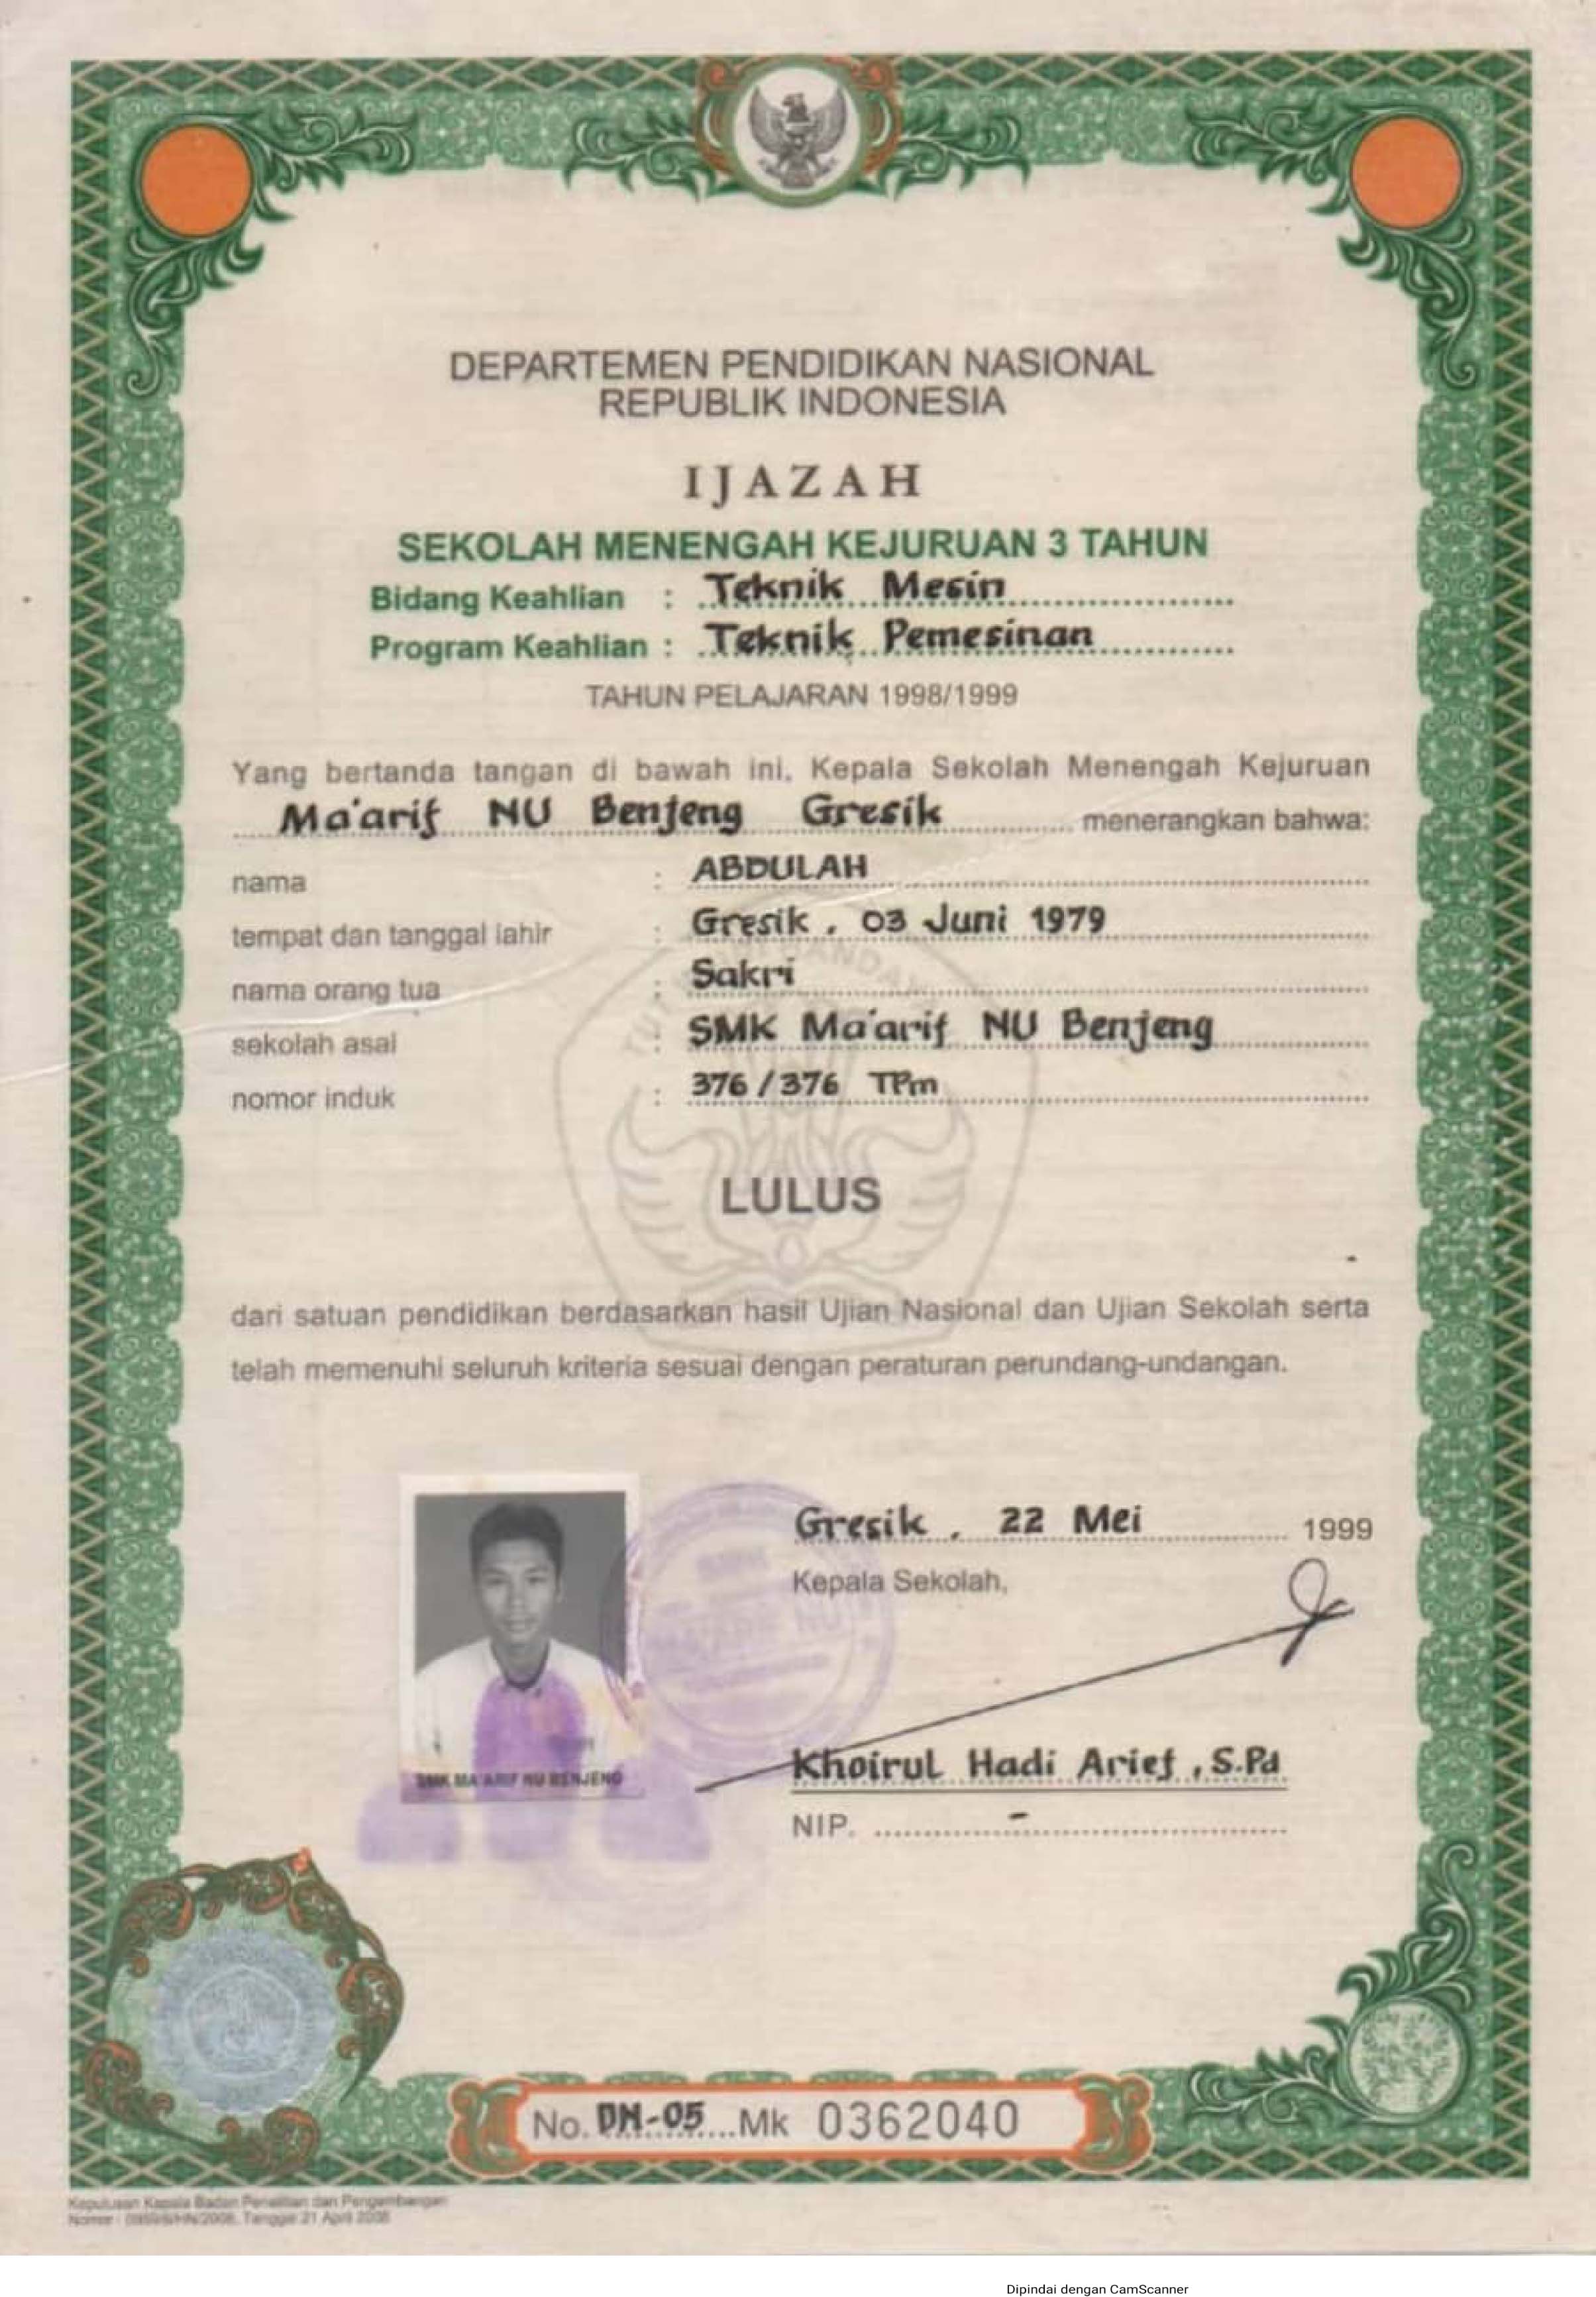 DEPARTEMEN PENDIDIKAN NASIONAL
REPUBLIK INDONESIA
IJAZAH
SEKOLAH MENENGAH KEJURUAN 3 TAHUN
Bidang Keahlian : Teknik Mesin
Program Keahlian : Teknik Pemesinan
TAHUN PELAJARAN 1998/1999
Yang bertanda tangan di bawah ini, Kepala Sekolah Menengah Kejuruan
Ma'arif NU Benjeng Gresik menerangkan bahwa:
nama : ABDULAH
tempat dan tanggal lahir : Gresik, 03 Juni 1979
nama orang tua : Sakri
sekolah asal : SMK Ma'arif NU Benjeng
nomor induk : 376/376 TPm
LULUS
dari satuan pendidikan berdasarkan hasil Ujian Nasional dan Ujian Sekolah serta
telah memenuhi seluruh kriteria sesuai dengan peraturan perundang-undangan.
Gresik, 22 Mei 1999
Kepala Sekolah,
SMK MA'ARIF NU BENJENG
Khoirul Hadi Arief, S.Pd
NIP. -
No. DN-05 Mk 0362040
Keputusan Kepala Badan Penelitian dan Pengembangan
Nomor : Tanggal 21 April 2008
Dipindai dengan CamScanner